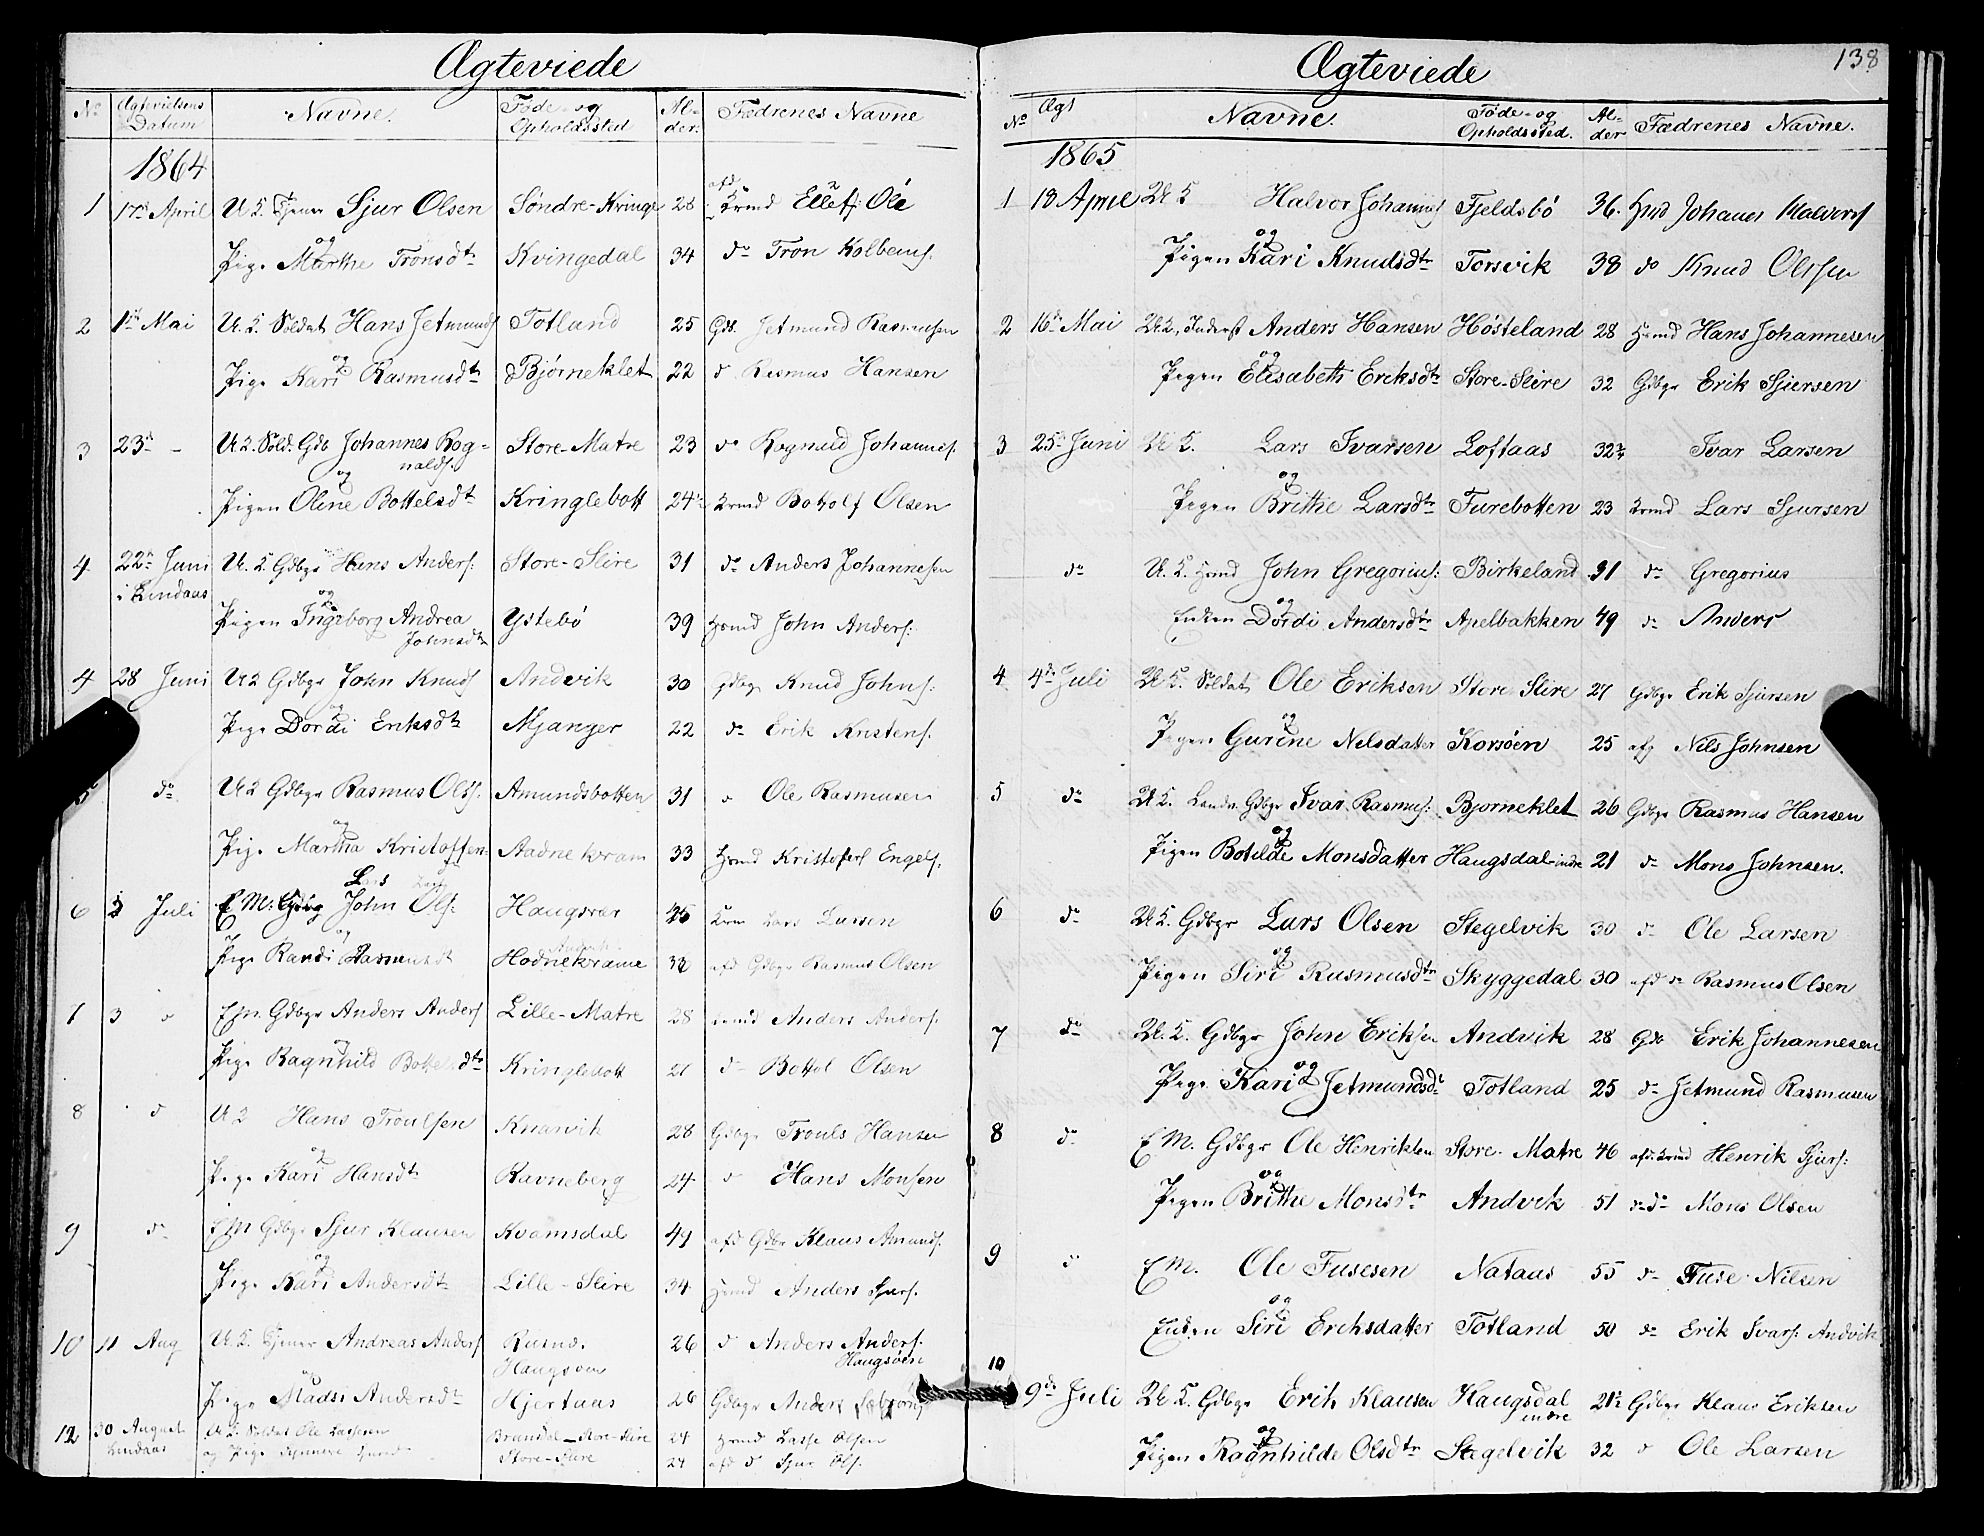 Ægteviede
No Ægtevielsens Datum Navne. Føde- og Opholdssted Alder. Fædrenes Navne
1864
1 17de April U. K. Sjur Olsen Søndre-Kringe 28 Ole
og
Pige Marthe Tronsdtr Kvingedal 34 do Tron Kolbeins.
2 1ste Mai U. K. Soldat Hans Jetmunds Totland 25 Jetmund Rasmusen
og
Pige Kari Rasmusdtr Bjørneklet 22 d Rasmus Hansen
3 23de - U. K. Sold. Gdb Johannes Rog- Store-Matre 23 do Rognald Johannes.
nalds.
og
Pigen Oline Bottelsdtr Kringlebott 24 Botholf Olsen
4 22de Juni U. K. Gdbgr Hans Anders: Store-Slire 31 do Anders Johannesen
i Lindaas
og
Pigen Ingeborg Andrea Ystebø 39 Hsmd John Anders:
Johnsdtr
4 28 Juni U K Gdbgr John Knuds Andvik 30 Gdbgr Knud Johns:
og
Pige Dordi Eriksdtr Mjanger 22 do Erik Kristens.
5 do U K Gdbgr Rasmus Ols. Amundsbotten 31 " Ole Rasmusen
og
Pige Martha Kristoffers Aadnekvam 33 Hsmd Kristofers Engels.
Lars
6 Juli E. M. Gdbgr John Ols: Haugsvær 45 Lars Larsen
og
Pige Randi Rasmusdtr Hodnekvame afd Gdbgr Rasmus Olsen
7 3 " E M. Gdbgr Anders Anders Lille-Matre 28 Anders Anders.
og
Pige Ragnhild Bottelsdtr Kringlebott 21 d Bottel Olsen
8 d U K Hans Troulsen Knarvik 28 Gdbgr Trouls Hansen
og
Pige Kari Hansdtr Ravneberg 24 " Hans Monsen
9 do E M Gdbgr Sjur Klausen Kvamsdal 49 afd Gdbr Klaus Amunds.
og
Pige Kari Andersdtr Lille-Slire 34 Hsmd Anders Sjurs.
10 11 Aug U. K. Tjener Andreas Anders 26 d Anders Anders.
Haugsøen Haugsøen
og
Pige Madsi Andersdtr Hjertaas 26 Gdbgr Anders
12 30 August U K Soldat Ole Lassesen Store-Slire 24 Hsmd Lasse Olsen
Lindaas og Pige Store-Slire 24 afd d Sjur Ols.
Ægteviede 138
No Ægt Navne. Føde- og Opholdssted. Alder Fædrenes Navne.
1865
1 18 April U. K Halvor Johannes Fjeldsbø 36. Johanes Halvors
og
Pigen Kari Knudsdtr Torsvik 38 do Knud Olssen
2 16de Mai U. K. Inderst Anders Hansen Høsteland 28 Hsmd Hans Johannesen
og
Pigen Elisabeth Eriksdtr Store-Slire 32 Gdbgr Erik Sjursen
3 25de Juni U K. Lars Ivarsen Loftaas 32 Ivar Larsen
og
Pigen Brithe Larsdtr Furebotten 23 Lars Sjursen
do U. K. Hsmd John Gregorius: Birkeland 31 do Gregorius
og
Enken Dordi Andersdtr Apelbakken 49 do Anders
4 4de Juli U K. Soldat Ole Eriksen Store Slire 27 Gdbgr Erik Sjursen
og
Pigen Gurine Nelsdatter Korsøen 25 afg Nils Johnsen
5 do U K. Gdbgr Ivar Rasmus. Bjorneklet 26 Gdbgr Rasmus Hansen
og
Pigen Botilde Monsdatter Haugsdal-indre 21 do Mons Johnsen.
6 do U K. Gdbgr Lars Olsen Stegelvik 30 do Ole Larsen
og
Pigen Siri Rasmusdtr Skyggedal 30 afd do Rasmus Olsen
7 do U. K. Gdbgr John Eriksen Andvik 28 Gdb Erik Johannesen
og
Pige Kari Jetmundsdtr Totland 25 do Jetmund Rasmusen
8 do E M. Gdbgr Ole Henriksen Store-Matre 46 Henrik Sjurs:
og
Pigen Brithe Monsdtr Andvik 51 do do Mons Olsen
9 d E M. Ole Fusesen Nataas 55 do Fuse Nilsen
og
Enken Siri Eriksdatter Totland 50 do Erik Ivars. Andvik
10
9de Juli U K. Gdbgr Erik Klausen Haugsdal indre 21 Gdbgr Klaus Eriksen
og
Pigen Ragnhilde Olsdtr Stegelvik 32 d Ole Larsen